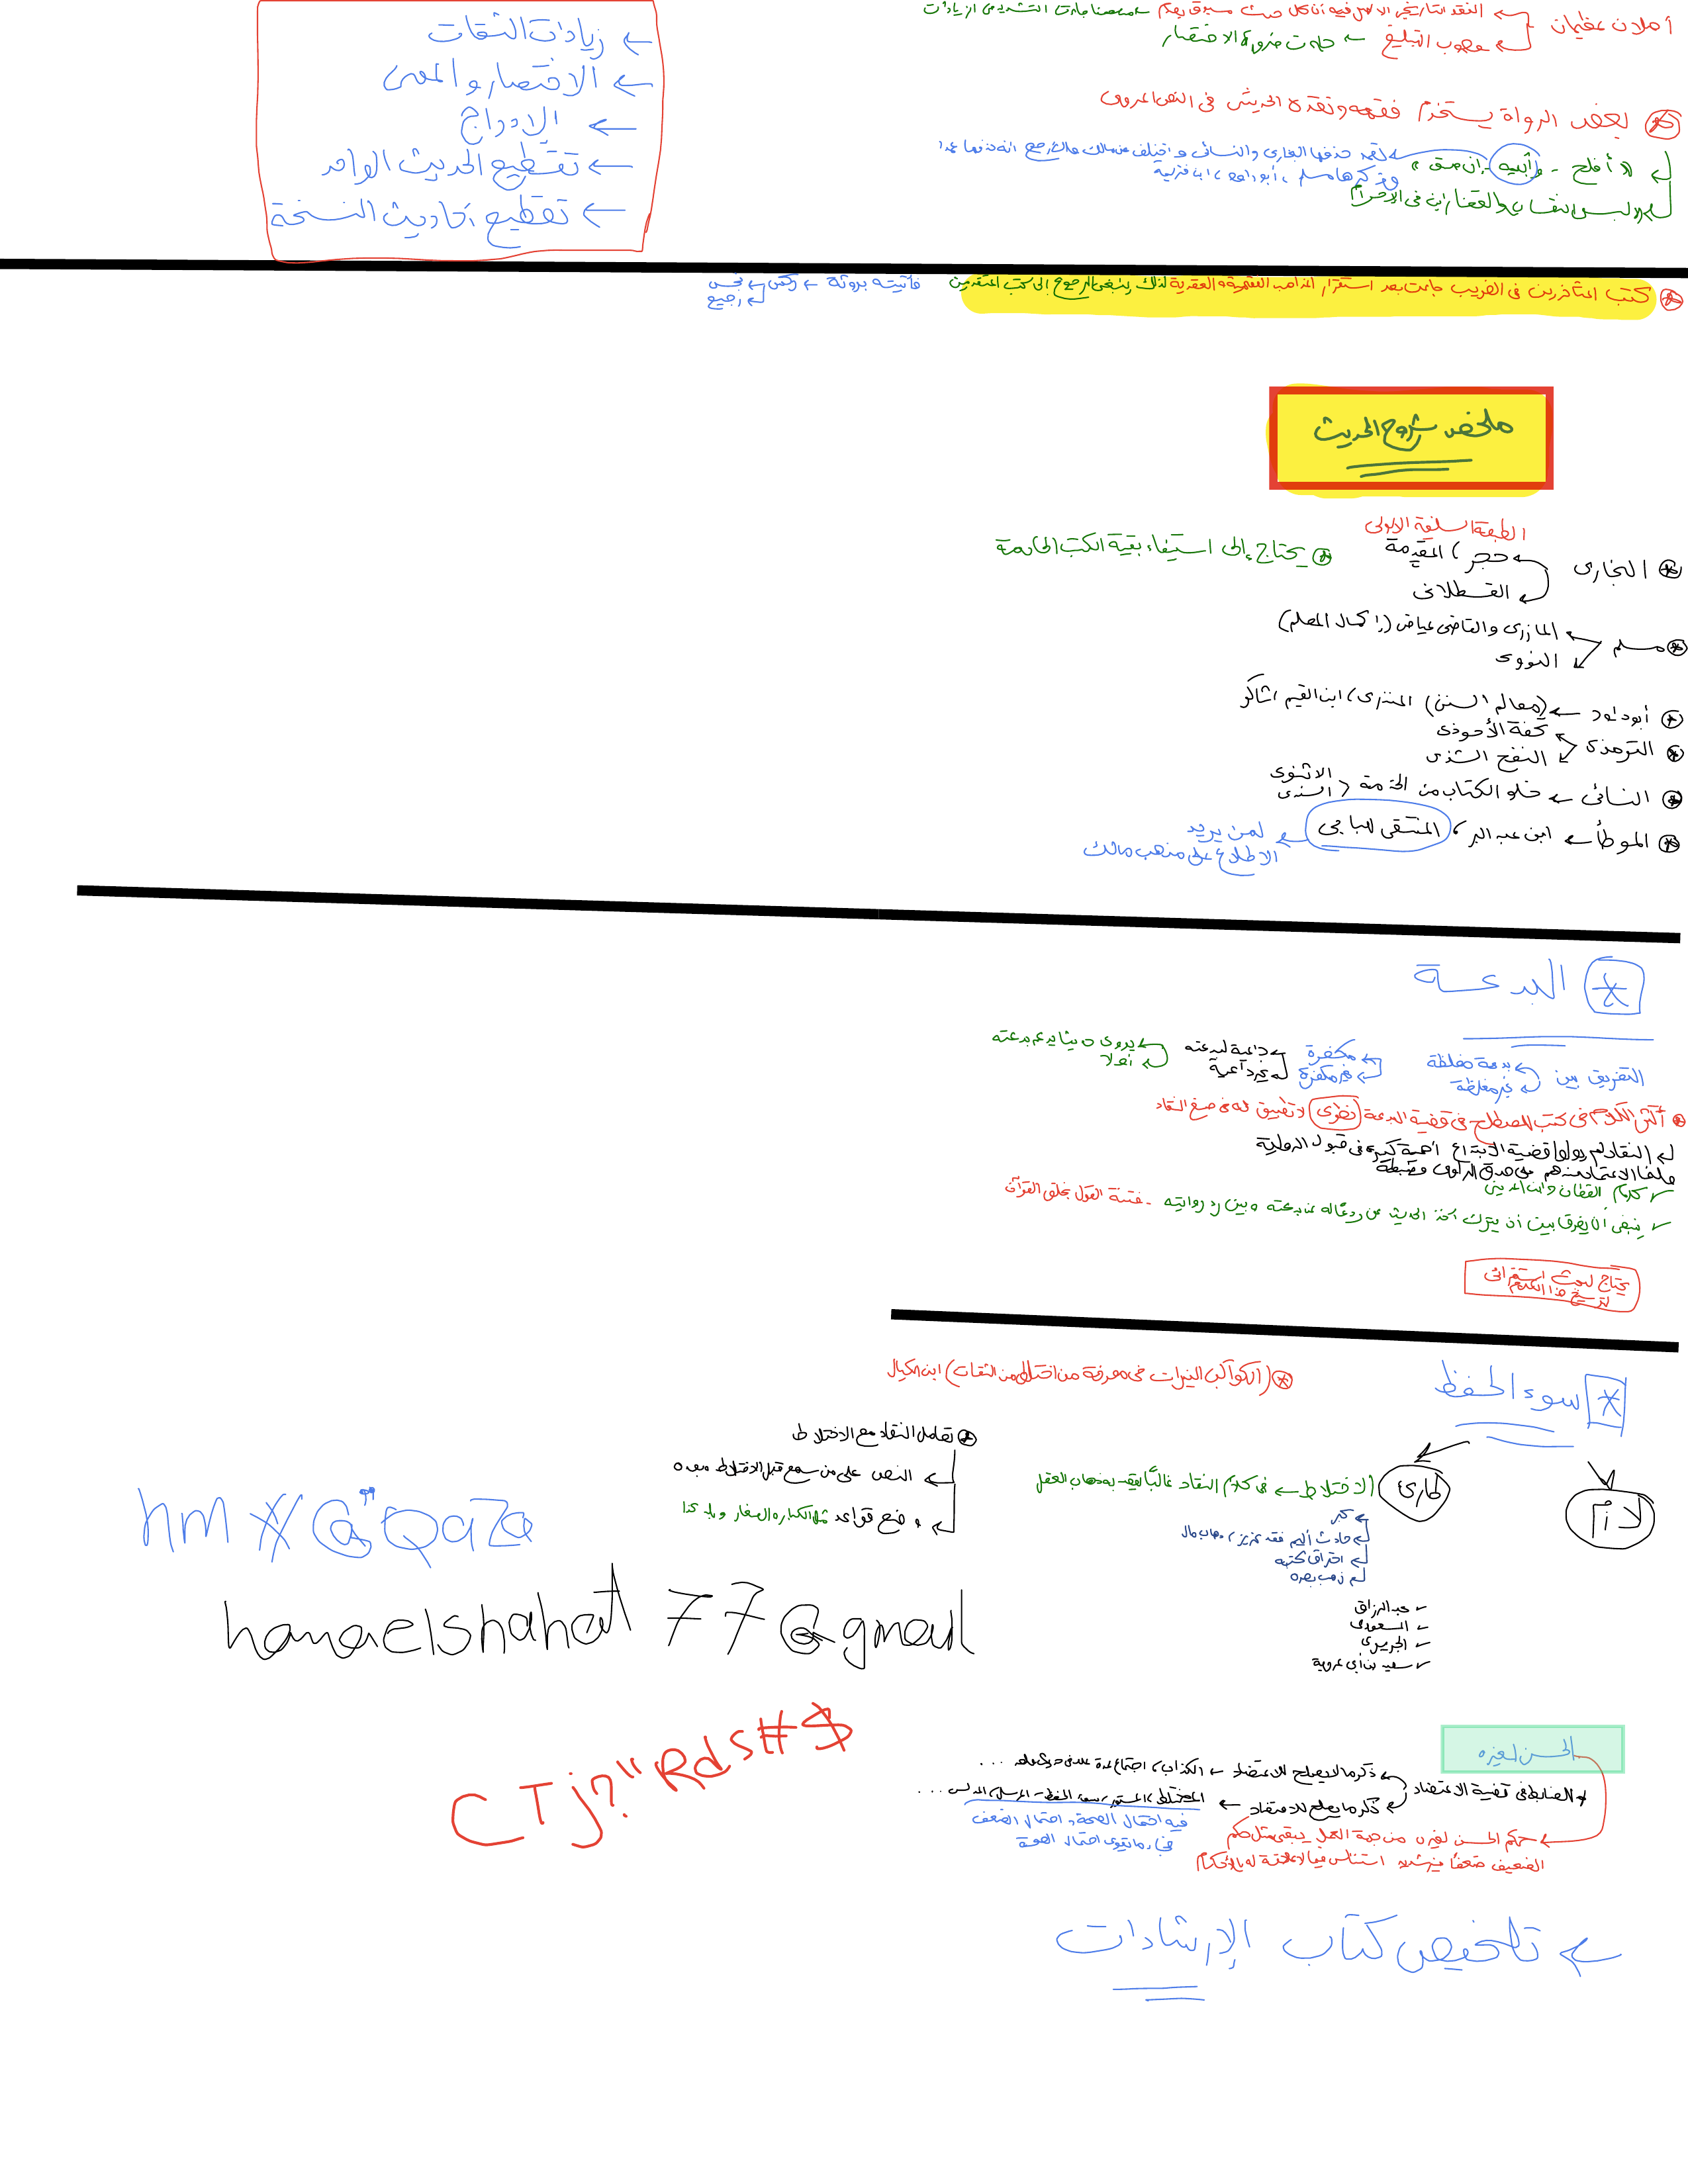 أصلان عظيمان
النقد التاريخي الأصل فيه أن كل حديث مسبوق بحكم
وجوب التبليغ ← جاءت ضرورة الاختصار
← زيادات الثقات
← الاختصار والمعنى
← الإدراج
← تقطيع الحديث الواحد
← تقطيع أحاديث النسخة
بعض الرواة يستخدم فقهه ونقده الحديثي في النص المروي
"أفلح - وأبيه - إن صدق"
لفظة حذفها البخاري والنسائي واختلف عن مالك
وذكرها مسلم، أبو داود، ابن خزيمة
لبس النقاب والقفازين في الإحرام
كتب المتأخرين في الغريب جاءت بعد استقرار المذاهب الفقهية والعقدية لذلك ينبغي الرجوع إلى كتب المتقدمين
فأتيته بروثة ← ركس ← نجس
رجيع
ملخص شروح الحديث
الطبعة السلفية الأولى
البخاري
حجر (المقدمة
القسطلاني
يحتاج إلى استيفاء بقية الكتب الخادمة
مسلم
المازري والقاضي عياض (إكمال المعلم)
النووي
أبو داود ← (معالم السنن) المنذري، ابن القيم، شاكر
الترمذي
تحفة الأحوذي
النفح الشذي
النسائي ← خلو الكتاب من الخدمة
الاثيوبي
السندي
الموطأ ← ابن عبد البر، المنتقى للباجي
لمن يريد
الاطلاع على مذهب مالك
البدعة
التفريق بين
بدعة مغلظة
غير مغلظة
مكفرة
غير مكفرة
داعية لبدعته
غير داعية
يروي حديثا يدعم بدعته
أو لا
أكثر الكلام في كتب المصطلح في قضية البدعة نظري لا تطبيق له في صنيع النقاد
النقاد لم يولوا قضية الابتداع أهمية كبيرة في قبول الرواية
وإنما الاعتماد عندهم على صدق الراوي وضبطه
كلام القطان وابن المديني
ينبغي أن يفرق بين أن يترك أخذ الحديث عن ردعًا له عن بدعته وبين رد روايته - فتنة القول بخلق القرآن
يحتاج لبحث استقرائي
لترسيخ هذا الكلام
سوء الحفظ
(الكواكب النيرات في معرفة من اختلط من الثقات) ابن الكيال
لازم
طارئ
الاختلاط ← في كلام النقاد غالبًا يقصد به ذهاب العقل
كبر
حادث أليم فقد عزيز، ذهاب مال
احتراق كتبه
ذهب بصره
عبد الرزاق
المسعودي
الجريري
سعيد بن أبي عروبة
تعامل النقاد مع الاختلاط
النص على من سمع قبل الاختلاط وبعده
وضع قواعد مثل الكبار والصغار وبلد كذا
hm * @ " Qaza
hanaelshahat 77@gmail
CTj?"Rds#$
الحسن لغيره
الضابط في قضية الاعتضاد
ذكر ما لا يصلح للاعتضاد ← الكذاب،
ذكر ما يصلح للاعتضاد ← المختلط، المستور، سيء الحفظ - المرسل، المدلس ...
فيه احتمال الصحة واحتمال الضعف
فجاء ما يقوي احتمال الصحة
حكم الحسن لغيره من جهة العمل يبقى مثل حكم
الضعيف ضعفا غير شديد
← تلخيص كتاب الإرشادات